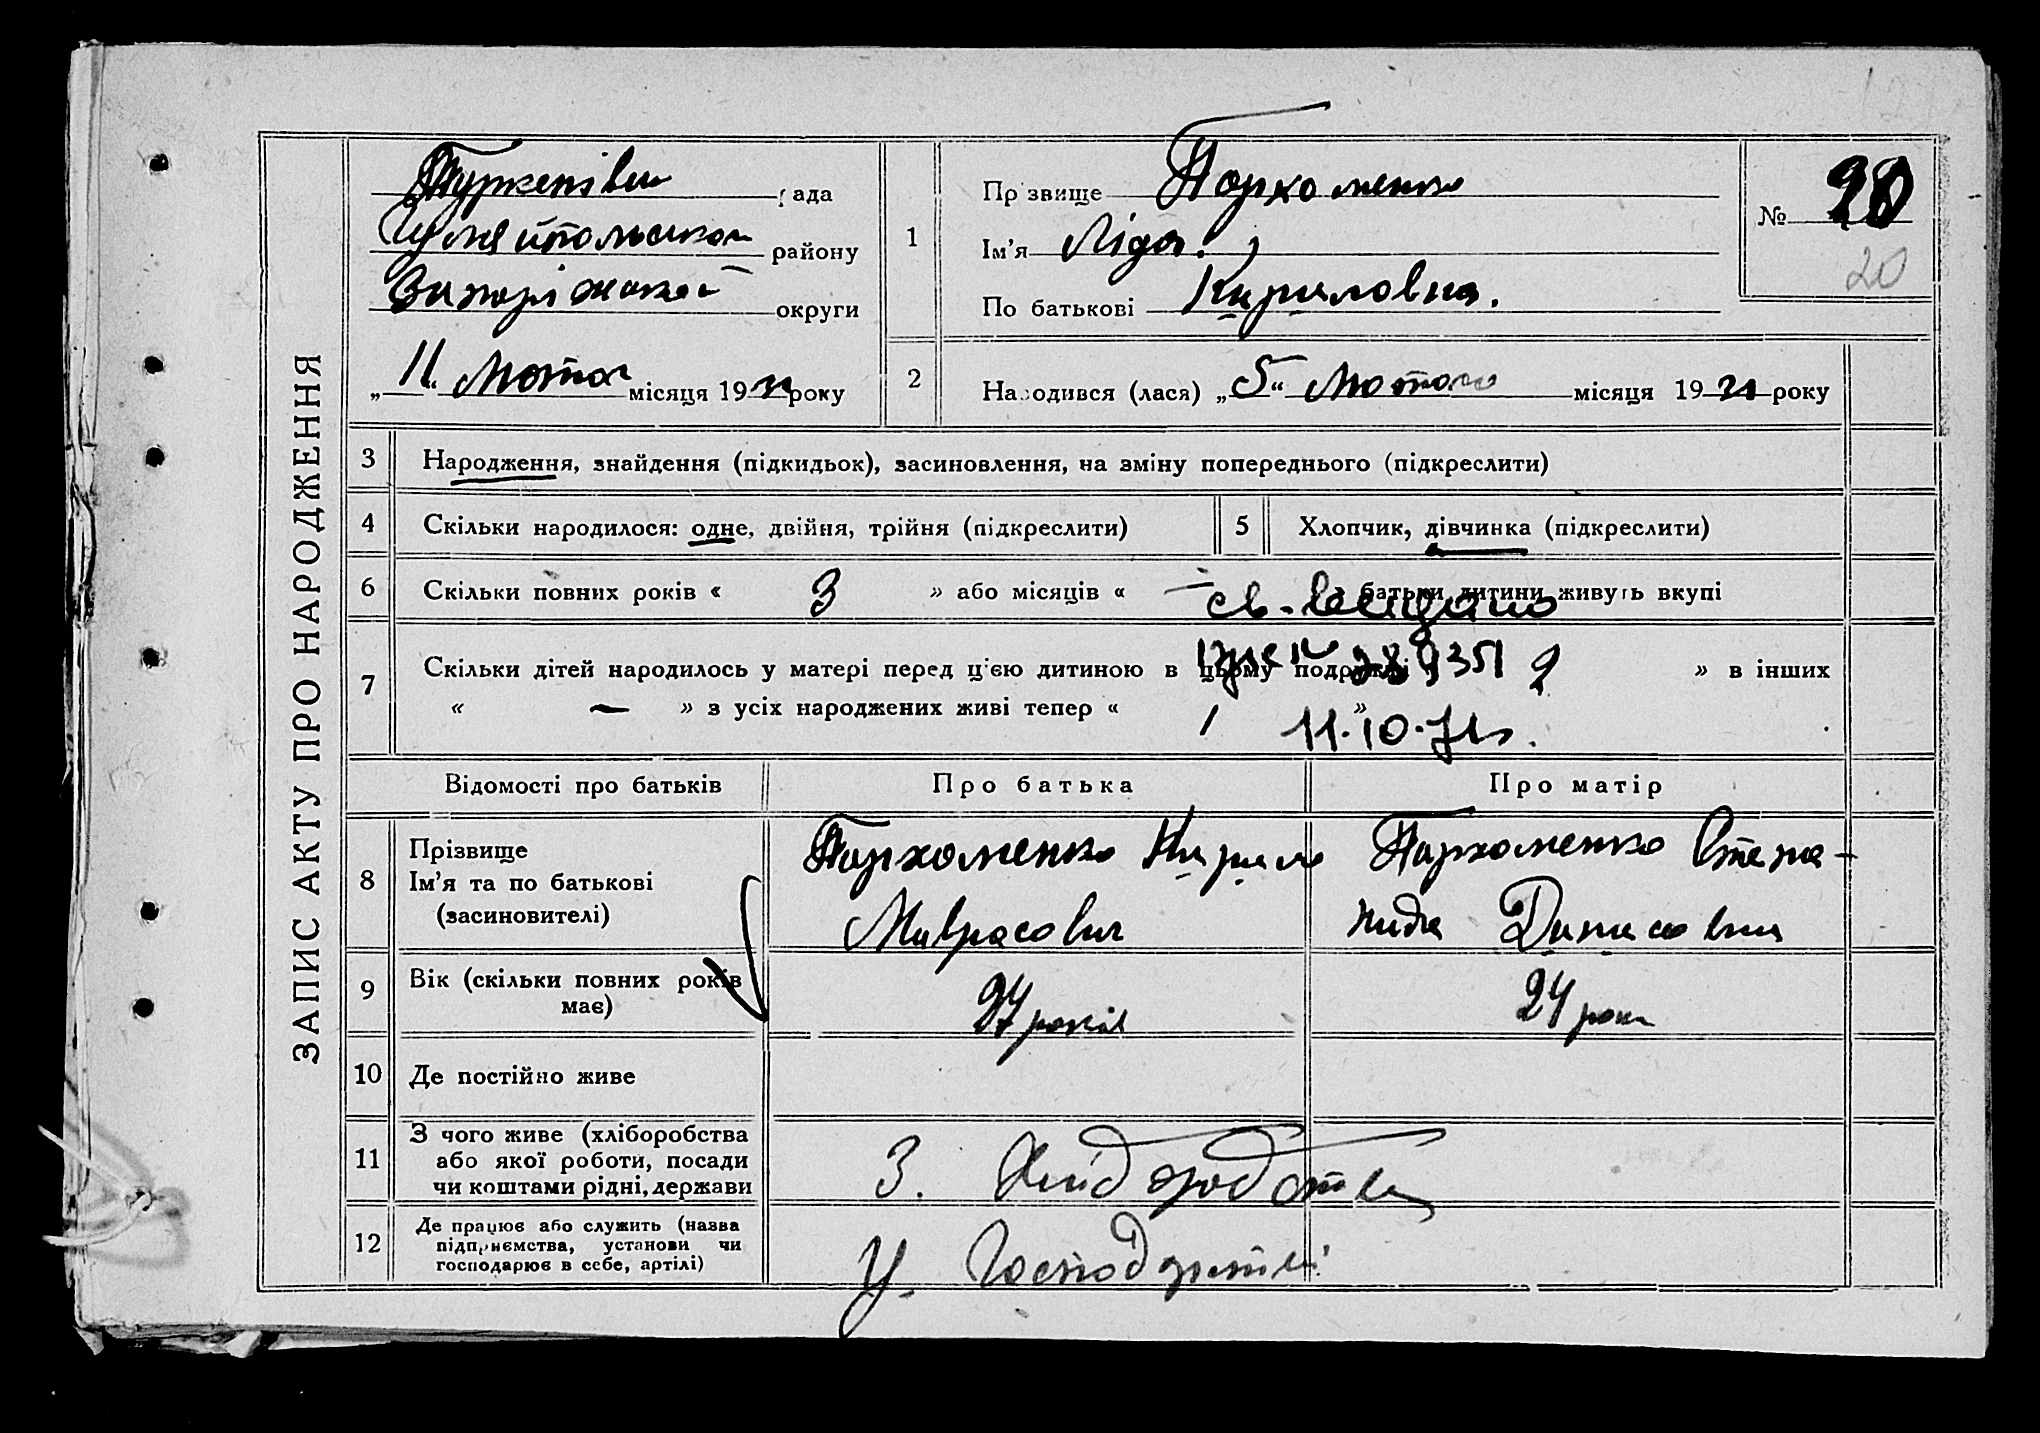 ЗАПИС АКТУ ПРО НАРОДЖЕННЯ
рада
району
округи
„ 11 “ Лютого місяця 19 року
1
Прізвище Пархоменко
Ім’я Ліда
По батькові Кириловна.
№ 20
20
2
Народився (лася) „ 5 “ Лютого місяця 19 року
3 Народження, знайдення (підкидьок), засиновлення, на зміну попереднього (підкреслити)
4 Скільки народилося: одне, двійня, трійня (підкреслити)
5 Хлопчик, дівчинка (підкреслити)
6 Скільки повних років « 3 » або місяців « — » батьки дитини живуть вкупі
св-во видано
7 Скільки дітей народилось у матері перед цією дитиною в цьому подружжі 2 » в інших
« — » з усіх народжених живі тепер « 1 »
11.10.71г.
Відомості про батьків
Про батька
Про матір
8 Прізвище
Ім’я та по батькові
(засновителі)
Пархоменко Кирило
Мавра­сович
Пархоменко Степа-
нида Данисовна
9 Вік (скільки повних років
має)
років
24 роки
10 Де постійно живе
11 З чого живе (хліборобства
або якої роботи, посади
чи коштами рідні, держави
З. Хліборобства
12 Де працює або служить (назва
підприємства, установи чи
господарює в себе, артілі)
У Господарстві